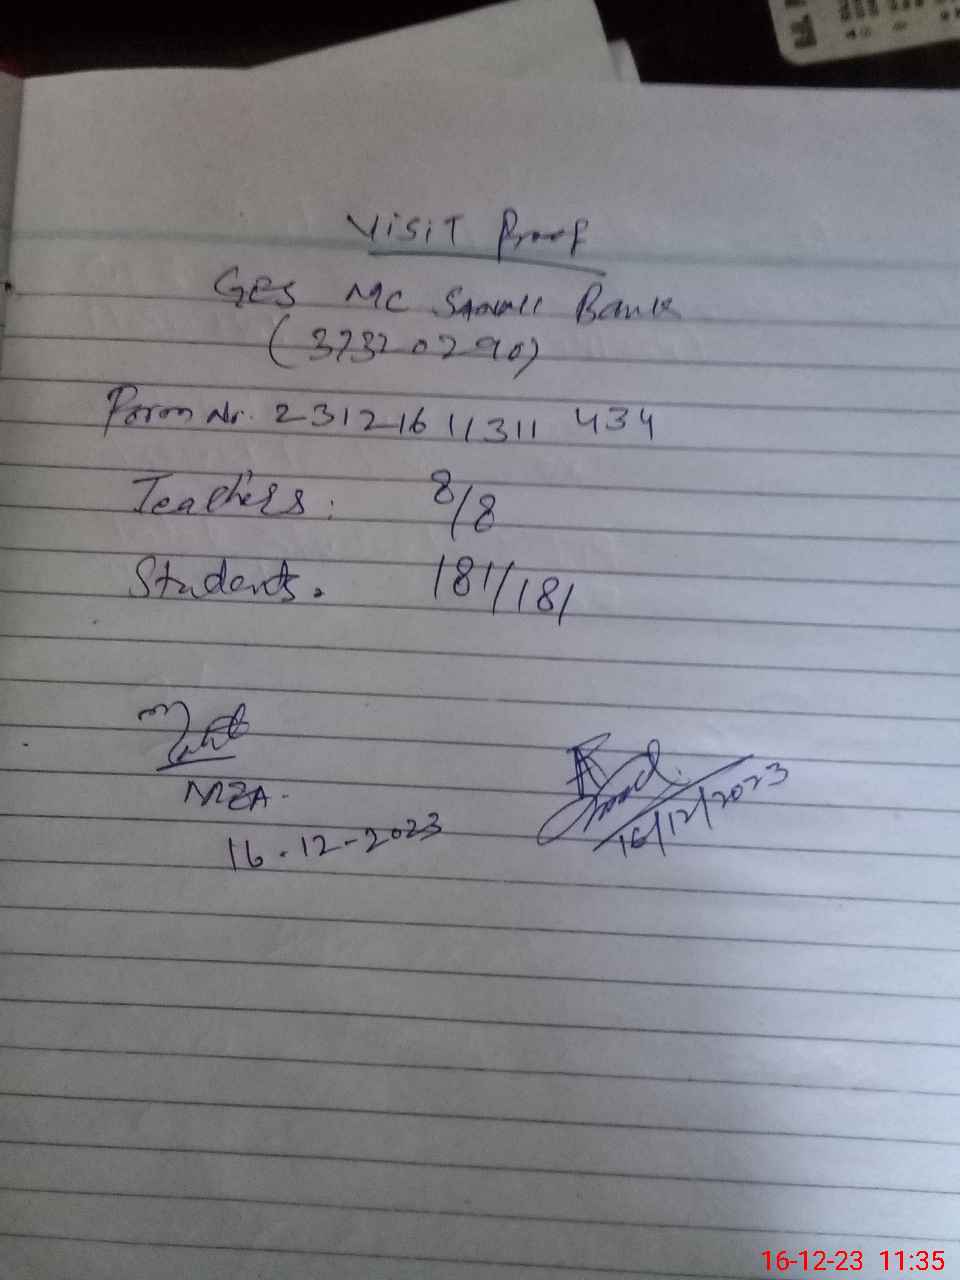 Visit Proof
GES MC Bank
(37320290)
Form Nr. 23121611311 434
Teachers: 8/8
Students. 181/181
MEA.
16-12-2023
16/12/2023
16-12-23 11:35